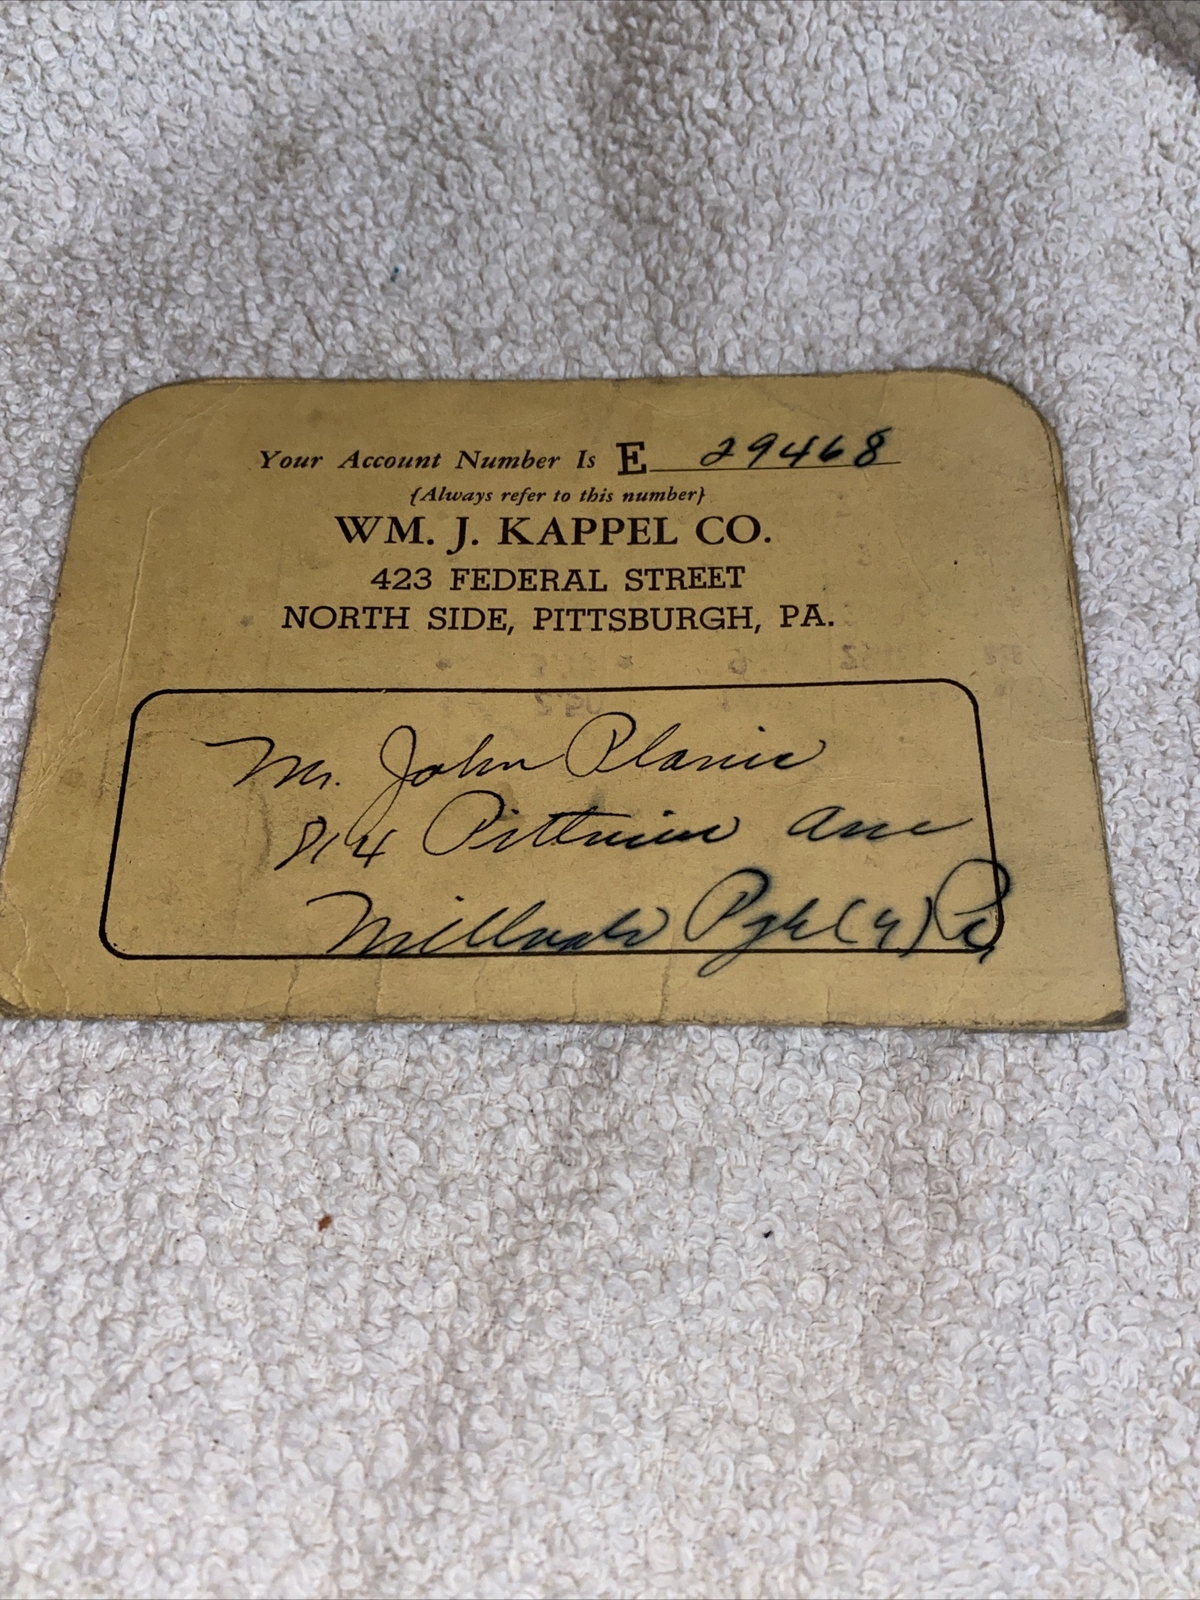 Your Account Number Is E 29468
{Always refer to this number}
WM. J. KAPPEL CO.
423 FEDERAL STREET
NORTH SIDE, PITTSBURGH, PA.
Mr. John Planic
814 Ave
Millvale Pgh (9) Pa